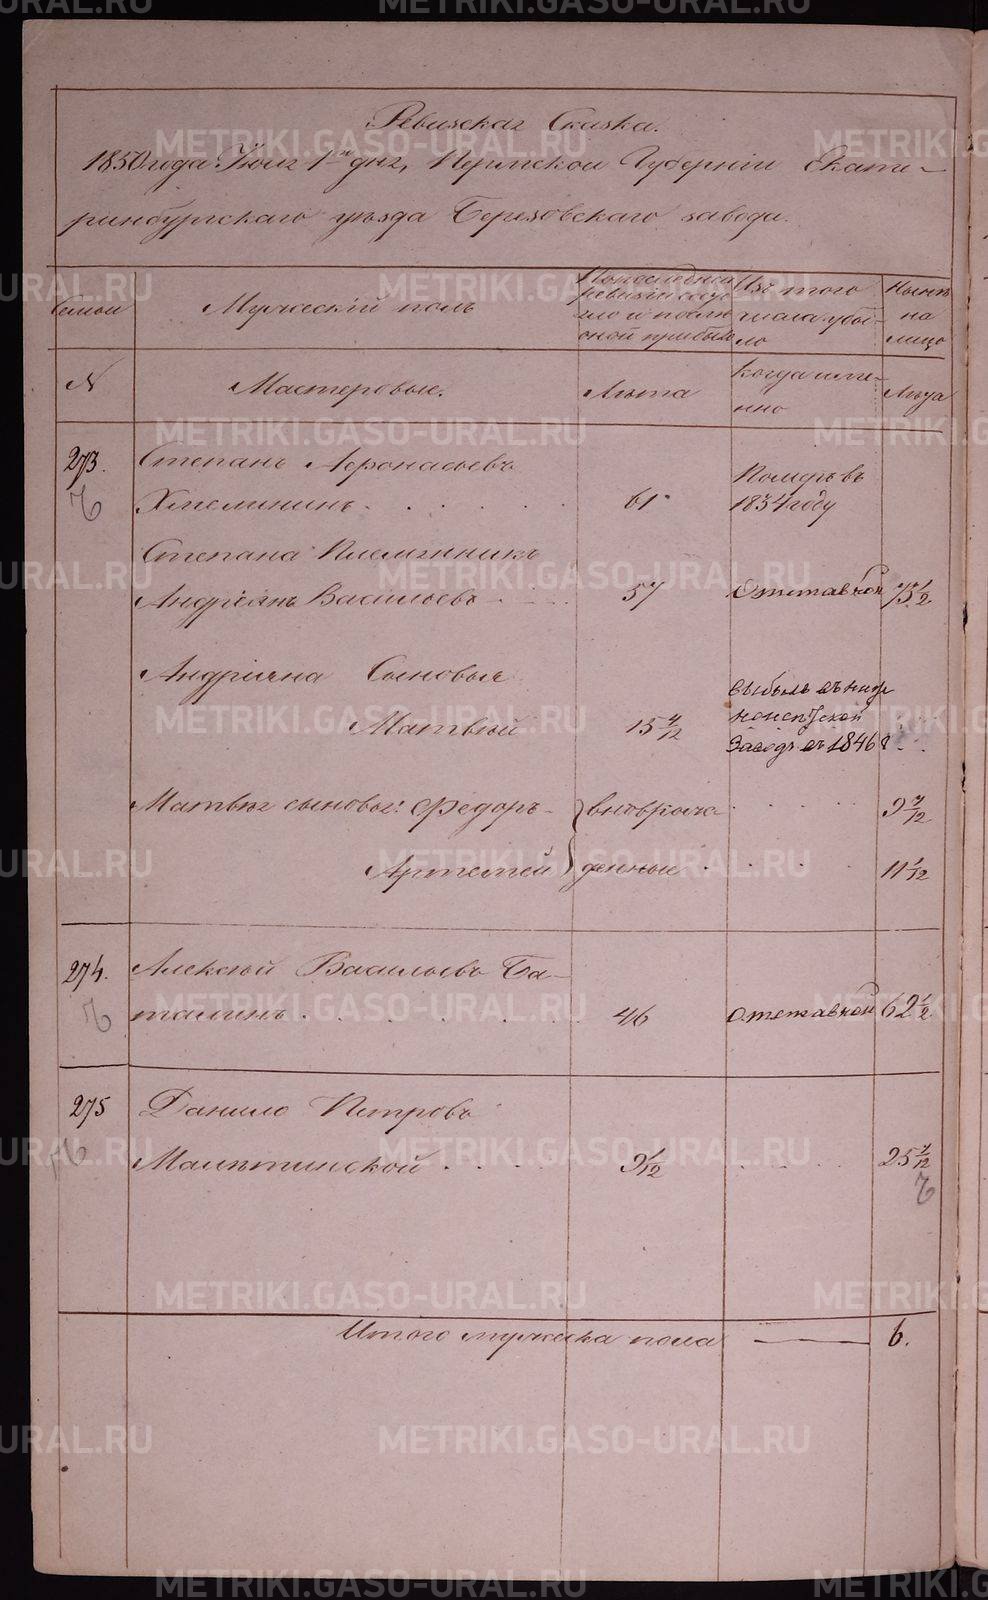 Ревизская Сказка.
1850 года Июля 1го дня, Пермской Губерніи Екате-
ринбургскаго уѣзда Березовскаго завода.
Семьи
Мужескій полъ
По последней ревизіи состояло и после оной прибыло
Изъ того числа убыло
Нынѣ на лицо
N
Мастеровые.
Лѣта
Когда име-
нно
Лѣта
273.
Степанъ Афонасьевъ
Хмелининъ
61
Померъ въ
1834 году
Степана Племянникъ
Андріянъ Васильевъ
57
Отставной
73 1/2
Андріяна Сыновья
Матвѣй
15 7/12
выбылъ въ
Заводъ въ 1846 г
Матвѣя сыновья: Федоръ
вновь рож-
9 7/12
Артемей
денные
11 1/12
274.
Алексѣй Васильевъ Ба-
талинъ
46
Отставной
62 1/2
275
Данило Петровъ
Малѣтинской
9 1/12
25 7/12
Итого мужеска пола
6.
METRIKI.GASO-URAL.RU